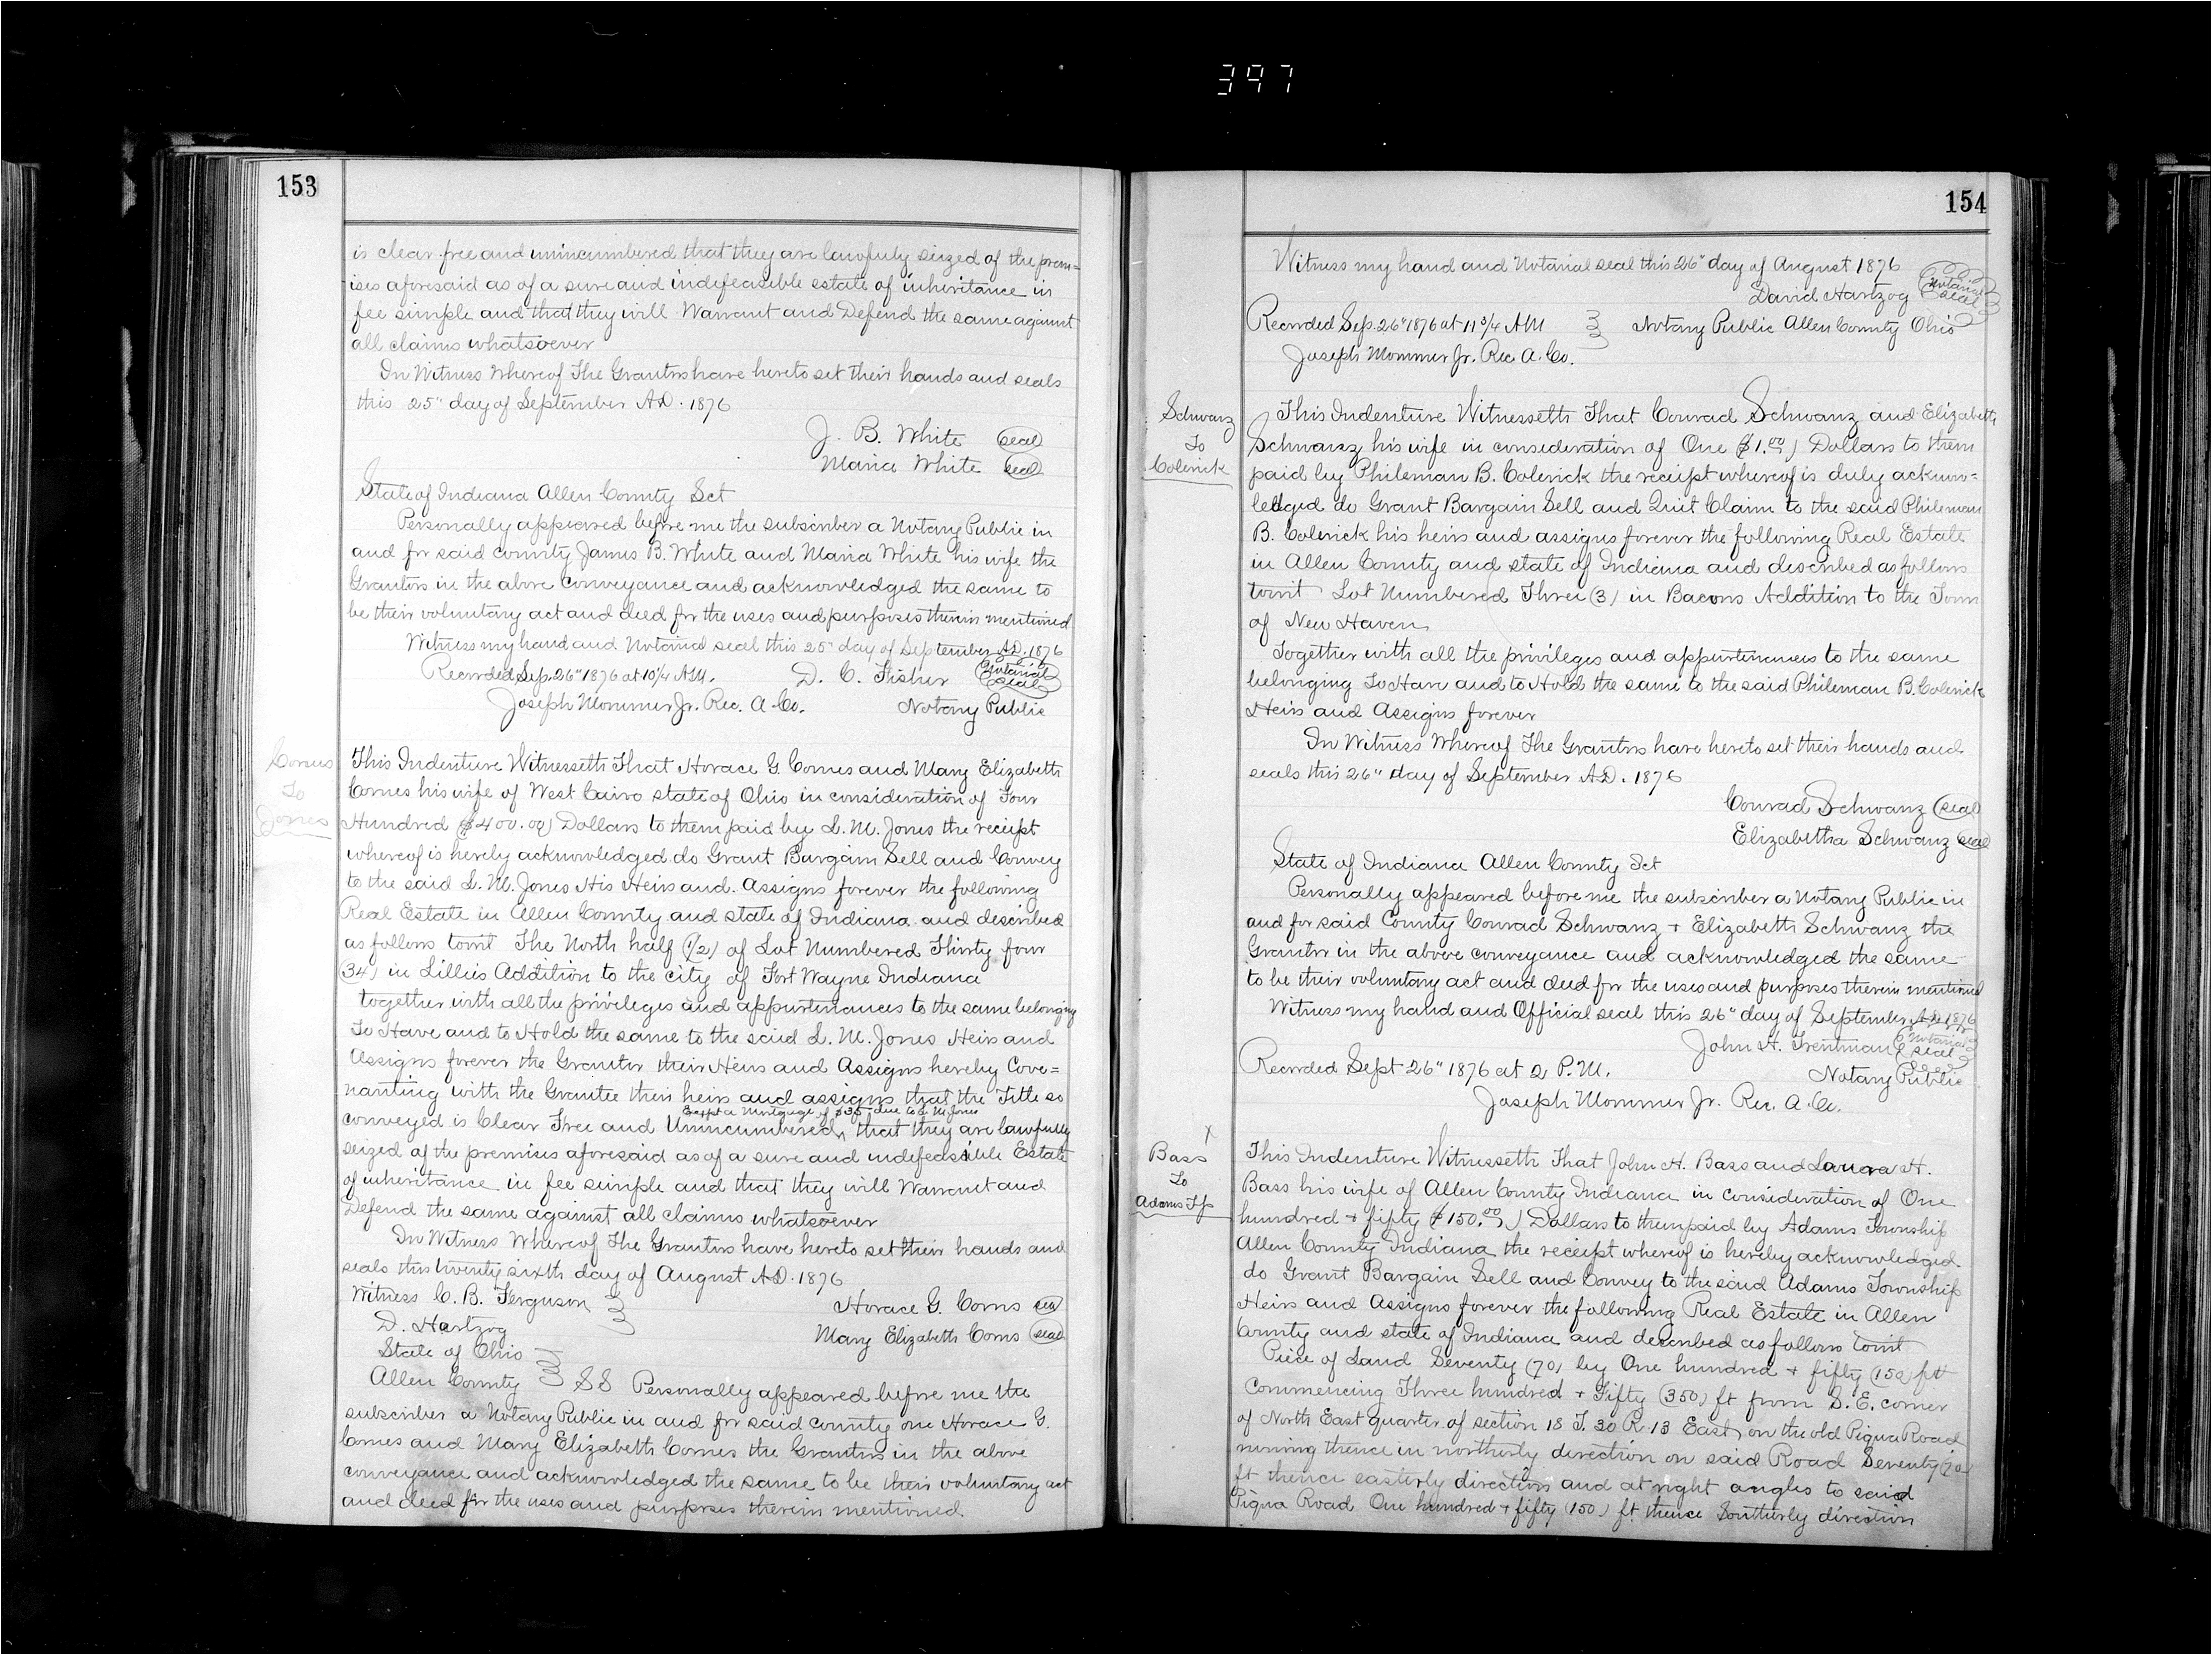 397
153
is clear free and unincumbered that they are lawfuly seized of the prem=
ises aforesaid as of a sure and indefeasible estate of inheritance in
fee simple and that they will Warrant and Defend the same against
all claims whatsoever
In Witness Whereof The Grantors have hereto set their hands and seals
this 25" day of September A.D. 1876
J. B. White seal
Maria White seal
State of Indiana Allen County Sct
Personally appeared before me the subscriber a Notary Public in
and for said county James B. White and Maria White his wife the
Grantors in the above conveyance and acknowledged the same to
be their voluntary act and deed for the uses and purposes therein mentioned
Witness my hand and Notarial seal this 25" day of September A.D. 1876
Recorded Sep. 26" 1876 at 10 1/4 A.M. D. C. Fisher Notarial seal
Joseph Mommer Jr. Rec. A. Co. Notary Public
Cornes
To
Jones
This Indenture Witnesseth That Horace G. Cornes and Mary Elizabeth
Cornes his wife of West Cairo state of Ohio in consideration of Four
Hundred ($400.00) Dollars to them paid by L. M. Jones the receipt
whereof is hereby acknowledged do Grant Bargain Sell and Convey
to the said L. M. Jones His Heirs and Assigns forever the following
Real Estate in Allen County and state of Indiana and described
as follows towit The North half (1/2) of Lot Numbered Thirty four
(34) in Lillies Addition to the city of Fort Wayne Indiana
together with all the privileges and appurtenances to the same belonging
To Have and to Hold the same to the said L. M. Jones Heirs and
Assigns forever the Grantor their Heirs and Assigns hereby Cove=
nanting with the Grantee their heirs and assigns that the Title so
Except a Mortgage of $35 due to L M Jones
conveyed is Clear Free and Unincumbered, that they are lawfully
seized of the premises aforesaid as of a sure and indefeasible Estate
of inheritance in fee simple and that they will Warrant and
Defend the same against all claims whatsoever
In Witness Whereof The Grantors have hereto set their hands and
seals this twenty sixth day of August A.D. 1876
Witness C. B. Ferguson Horace G. Corns seal
D. Hartzog Mary Elizabeth Corns seal
State of Ohio
Allen County SS Personally appeared before me the
subscriber a Notary Public in and for said county one Horace G.
Cornes and Mary Elizabeth Cornes the Grantors in the above
conveyance and acknowledged the same to be their voluntary act
and deed for the uses and purposes therein mentioned.
154
Witness my hand and Notarial seal this 26" day of August 1876
David Hartzog Notarial seal
Recorded Sep. 26" 1876 at 11 3/4 AM Notary Public Allen County Ohio
Joseph Mommer Jr. Rec A. Co.
Schwanz
To
Colerick
This Indenture Witnesseth That Conrad Schwanz and Elizabeth
Schwanz his wife in consideration of One ($1.00) Dollars to them
paid by Phileman B. Colerick the receipt whereof is duly acknow=
ledged do Grant Bargain Sell and Quit Claim to the said Phileman
B. Colerick his heirs and assigns forever the following Real Estate
in Allen County and state of Indiana and described as follows
towit Lot Numbered Three (3) in Bacons Addition to the Town
of New Haven
Together with all the privileges and appurtenances to the same
belonging To Have and to Hold the same to the said Phileman B. Colerick
Heirs and Assigns forever
In Witness Whereof The Grantors have hereto set their hands and
seals this 26" day of September A.D. 1876
Conrad Schwanz seal
Elizabetha Schwanz seal
State of Indiana Allen County Sct
Personally appeared before me the subscriber a Notary Public in
and for said County Conrad Schwanz + Elizabeth Schwanz the
Grantor in the above conveyance and acknowledged the same
to be their voluntary act and deed for the uses and purposes therein mentioned
Witness my hand and Official seal this 26" day of September A.D. 1876
John H. Trentman Notarial seal
Recorded Sept 26" 1876 at 2 P.M. Notary Public
Joseph Mommer Jr. Rec. A. Co.
x
Bass
To
Adams Tp
This Indenture Witnesseth That John H. Bass and Laura H.
Bass his wife of Allen County Indiana in consideration of One
hundred + fifty ($150.00) Dollars to them paid by Adams Township
Allen County Indiana the receipt whereof is hereby acknowledged.
do Grant Bargain Sell and Convey to the said Adams Township
Heirs and Assigns forever the following Real Estate in Allen
County and state of Indiana and described as follows towit
Piece of Land Seventy (70) by One hundred + fifty (150) ft
Commencing Three hundred + Fifty (350) ft from S. E. corner
of North East quarter of section 18 T. 30 R. 13 East, on the old Piqua Road
running thence in northerly direction on said Road Seventy (70)
ft thence easterly direction and at right angles to said
Piqua Road One hundred + fifty (150) ft thence Southerly direction